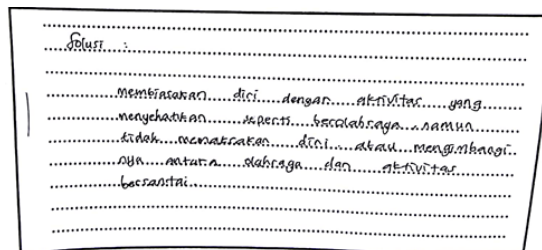 Solusi :
membiasakan diri dengan aktivitas yang
menyehatkan seperti berolahraga. namun
tidak memaksakan diri atau mengimbangi
nya antara olahraga dan aktivitas
bersantai